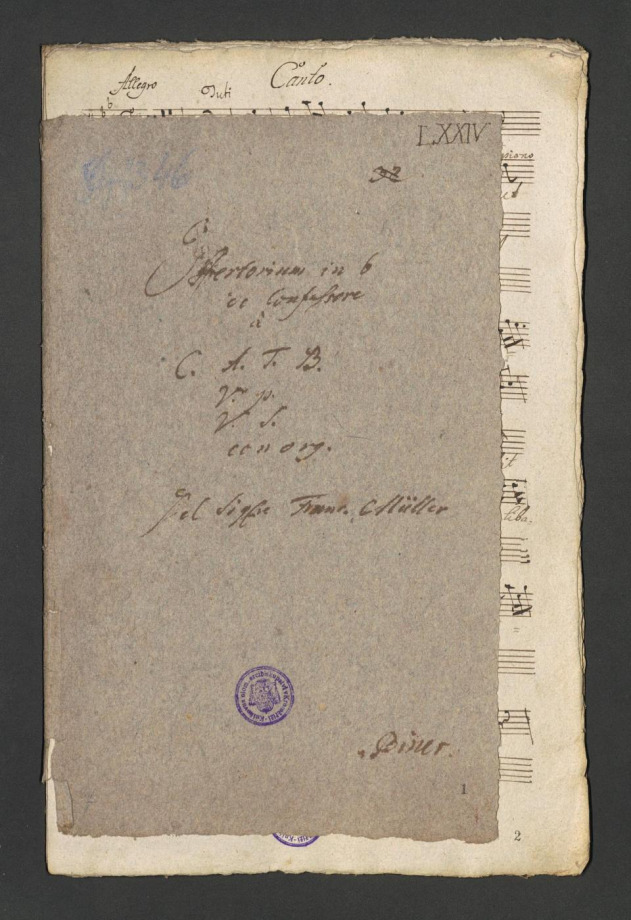 Canto.
Allegro
Tuti
LXXIV
346
32
Offertorium in b
de Confessore
à
C. A. T. B.
V. p.
V. S.
con org.
Del Sigre Franc. Müller
Biner.
1
2